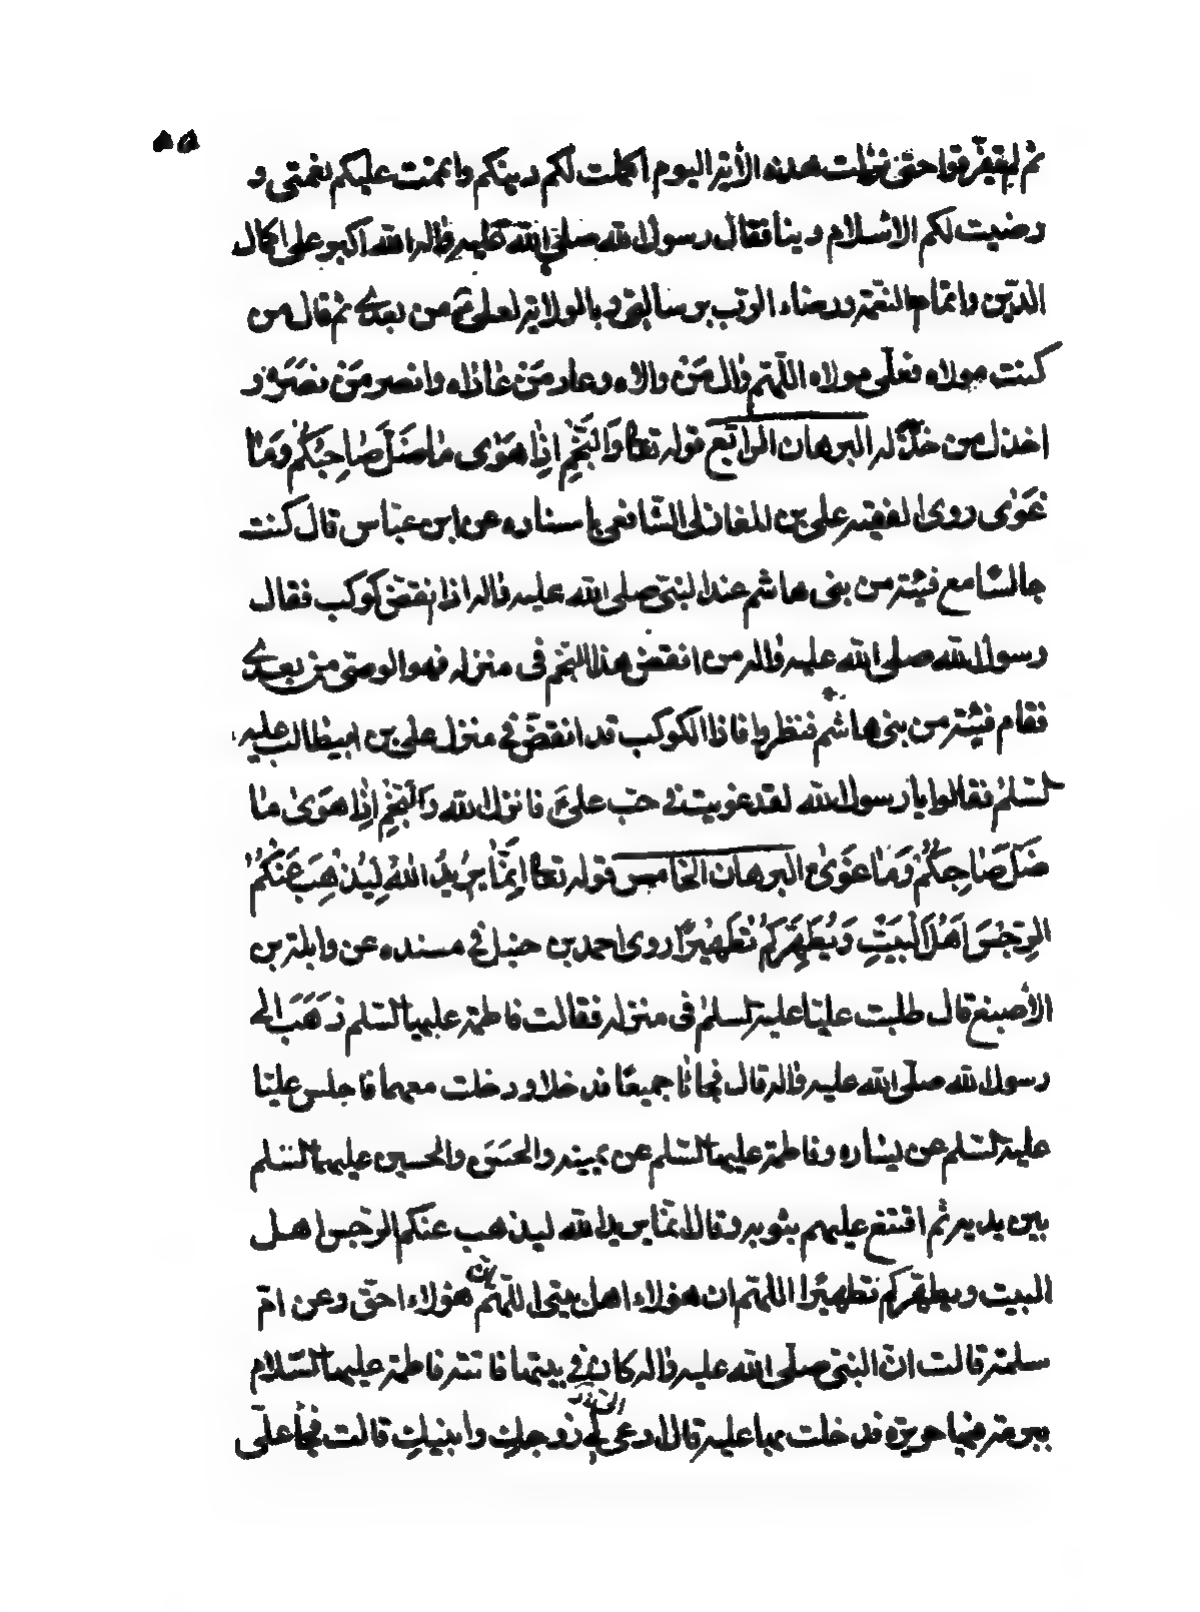 ۵۸
ثم لم يتفرقوا حتى نزلت هذه الأية اليوم اكملت لكم دينكم واتممت عليكم نعمتى و
رضيت لكم الاسلام دينا فقال رسول الله صلى الله عليه واله الله اكبر على اكمال
الدين واتمام النعمة ورضاء الرب برسالتى وبالولاية لعلى ع من بعدي ثم قال من
كنت مولاه فعلى مولاه اللهم وال من والاه وعاد من عاداه وانصر من نصره و
اخذل من خذله البرهان الرابع قوله تعا وَالنَّجْمِ اِذٰا هَوٰى مٰا ضَلَّ صٰاحِبُكُمْ وَمٰا
غَوٰى روى الفقيه على بن المغازلى الشافعى باسناده عن ابن عباس قال كنت
جالسا مع فيئة من بنى هاشم عند النبى صلى الله عليه واله اذ انقض كوكب فقال
رسول الله صلى الله عليه واله من انقض هذا النجم فى منزله فهو الوصى من بعدي
فقام فيئة من بنى هاشم فنظروا فاذا الكوكب قد انقض في منزل على بن ابيطالب عليه
السلم فقالوا يا رسول الله لقد غويت في حب على ع فانزل الله وَالنَّجْمِ اِذٰا هَوىٰ مٰا
ضَلَّ صٰاحِبُكُمْ وَمٰا غَوىٰ البرهان الخامس قوله تعا اِنَّمٰا يُرِيدُ اللهُ لِيُذْهِبَ عَنْكُمُ
الرِجْسَ اَهْلَ الْبَيْتِ وَيُطَهِّرَكُمْ تَطْهيٖرًا روى احمد بن حنبل في مسنده عن واثلة بن
الأصبغ قال طلبت عليا عليه السلم فى منزله فقالت فاطمة عليها السلم ذَهَبَ الى
رسول الله صلى الله عليه واله قال فجاٰنا جميعًا فدخلا ودخلت معهما فاجلس عليا
عليه السلم عن يساره وفاطمة عليها السلم عن يمينه والحسن والحسين عليهما السلم
بين يديه ثم اقتنع عليهم بثوبه وقال انما يريد الله ليذهب عنكم الرجس اهل
البيت ويطهركم تطهيرًا اللهم ان هؤلاء اهل بيتى اللهم ان هؤلاء احق وعن ام
سلمة قالت ان النبى صلى الله عليه واله كان في بيتها فاتته فاطمة عليها السلام
ببرمة فيها حريرة فدخلت بها عليه قال ادعى لي زوجك وابنيك قالت فجاء على